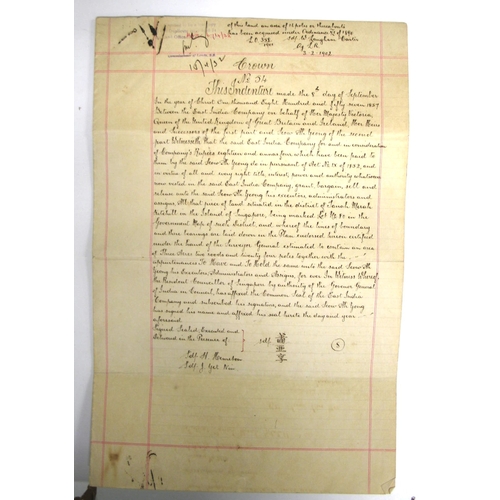 of this land an area of 13 poles or thereabouts
has been acquired under Ordinance
Crown
No 34
This Indenture made the 8th day of September
in the year of Christ One thousand Eight Hundred and fifty seven 1857
Between the East India Company on behalf of Her Majesty Victoria
Queen of the United Kingdom of Great Britain and Ireland, Her Heirs
and Successors of the first part and Seow Ah Geong of the second
part Witnesseth that the said East India Company for and in consideration
of Company's Rupees eighteen and annas four which have been paid to
them by the said Seow Ah Geong do in pursuance of Act No
in virtue of all and every right title, interest, power and authority whatsoever
now vested in the said East India Company, grant, bargain, sell and
release unto the said Seow Ah Geong his executors administrators and
assigns All that piece of land situated in the district of Tanah Merah
in the Island of Singapore, being marked Lot No 80 in the
Government Map of such District, and whereof the lines of boundary
and their bearings are laid down in the Plan endorsed hereon certified
under the hand of the Surveyor General estimated to contain an area
of Three Acres two roods and twenty four poles together with the
appurtenances To Have and To Hold the same unto the said Seow Ah
Geong his Executors Administrators and Assigns, for ever In Witness Whereof
the Resident Councillor of Singapore by authority of the Governor General
of India in Council, has affixed the Common Seal of the East India
Company and subscribed his signature, and the said Seow Ah Geong
has signed his name and affixed his seal hereto the day and year
aforesaid
Signed Sealed Executed and
Delivered in the Presence of
sd/
蕭亞享
S
Sd/. H.
Sd/. J.